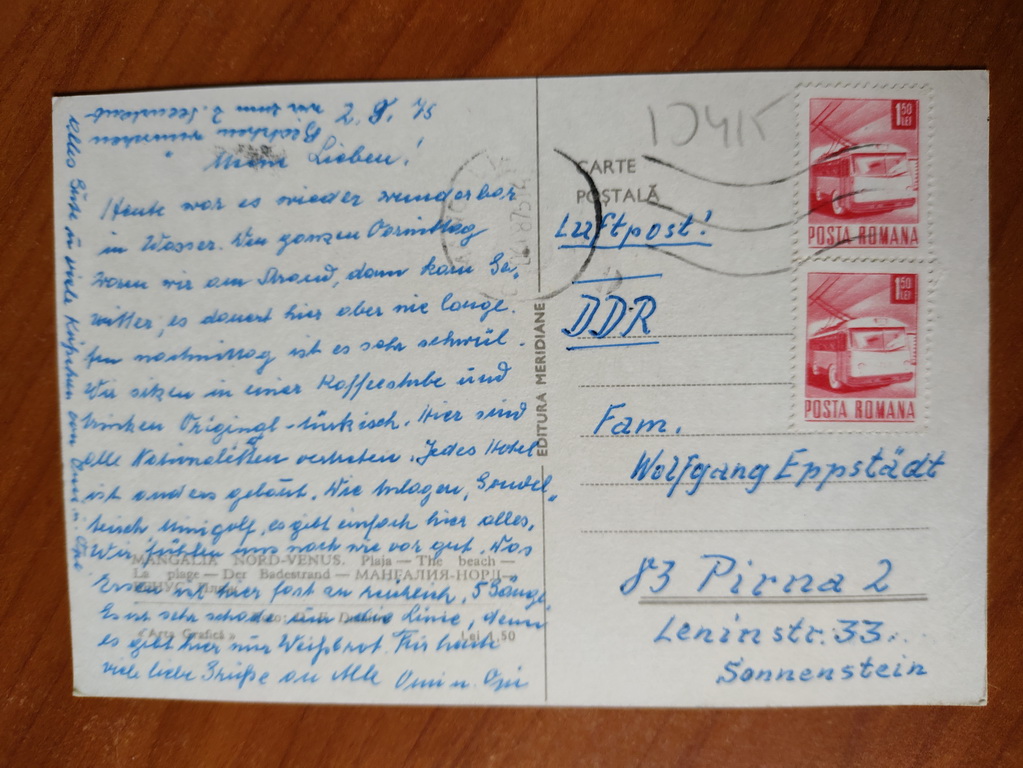 2. 8. 75
Meine Lieben!
Heute war es wieder wunderbar
im Wasser. Den ganzen Vormittag
waren wir am Strand, dann kam Ge-
witter, es dauert hier aber nie lange.
Am nachmittag ist es sehr schwül.
Wir sitzen in einer Kaffeestube und
trinken Original-türkisch. Hier sind
alle Nationalitäten vertreten. Jedes Hotel
ist anders gebaut. Wie Anlagen,
tisch Minigolf, es gibt einfach hier alles.
Wir fühlen uns nach wie vor gut. Das
Essen ist hier fast zu reichlich, 5 Gänge
Es ist sehr schade um die Linie, denn
es gibt hier nur Weißbrot. Für heute
viele liebe Grüße an Alle Omi u. Opi
Alles Gute u. viele Küßchen von Omi u. Opa
MANGALIA NORD-VENUS. Plaja — The beach —
La plage — Der Badestrand — МАНГАЛИЯ-НОРД-
« Arta Grafică » Lei 1,50
EDITURA MERIDIANE
CARTE
POȘTALĂ
1041K
1 50
LEI
POSTA ROMANA
1 50
LEI
POSTA ROMANA
Luftpost!
DDR
Fam.
Wolfgang Eppstädt
83 Pirna 2
Leninstr. 33.
Sonnenstein